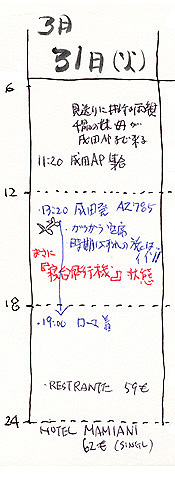 3月
31日(火)
6
見送りに
千葉の妹
成田APまで来る
11:20 成田AP 集合
12
・13:20 成田発 AZ785
・ガラガラ空席
時期はずれの旅は
イイゾ!
まさに
「寝台飛行機」状態
18
・19:00 ローマ着
・RESTRANTE 59€
24
HOTEL MAMIANI
62€ (SINGL)